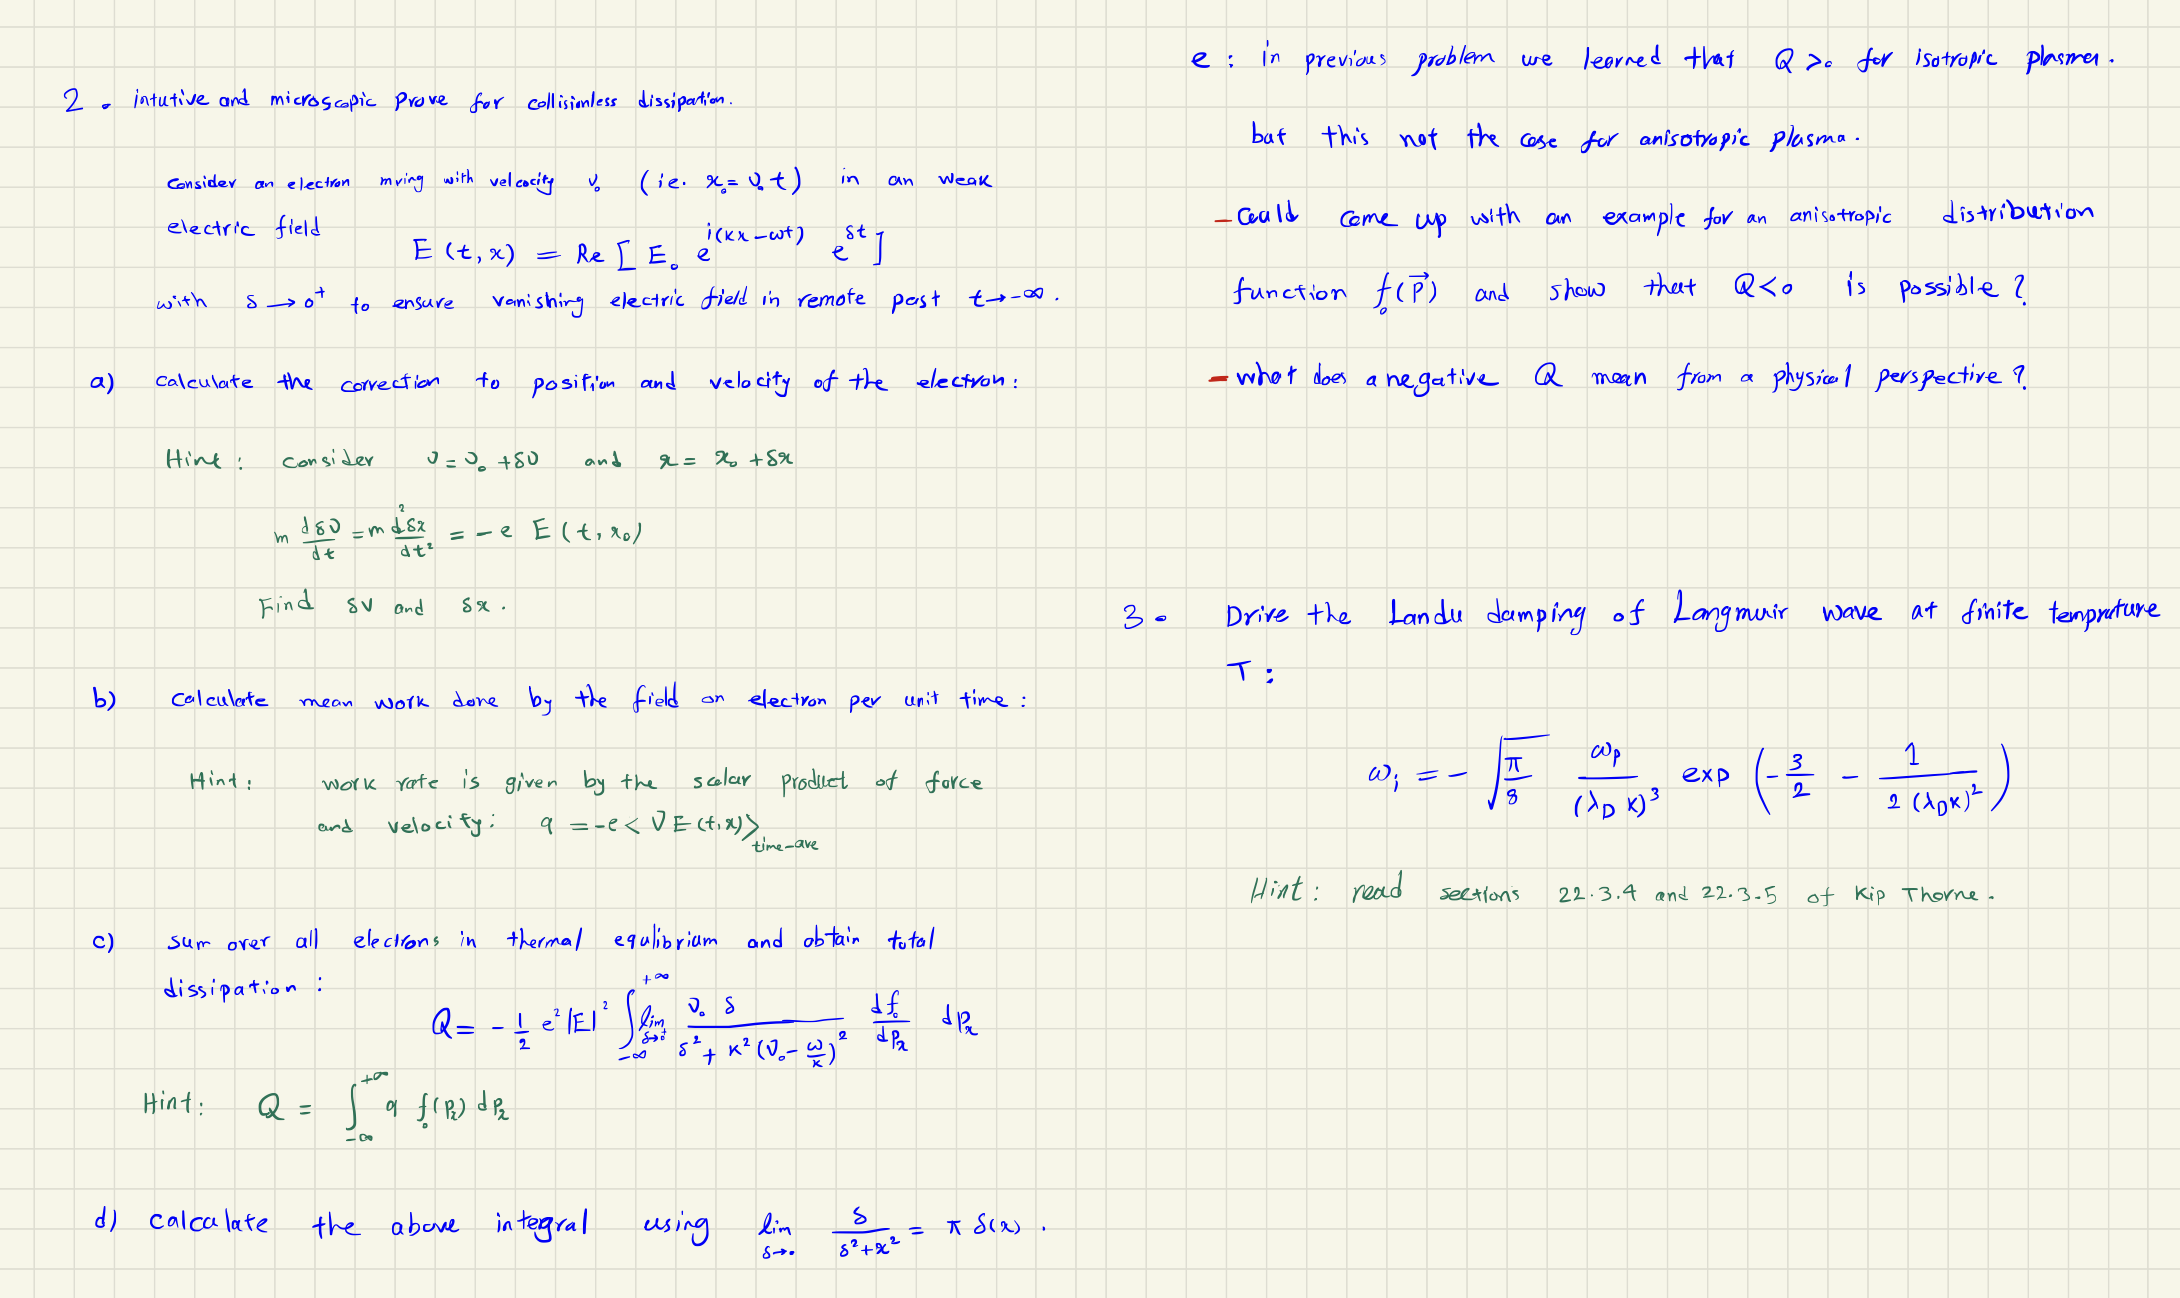 2. intutive and microscopic prove for collisionless dissipation.
Consider an electron mving with velcocity v₀ (ie. x₀ = v₀t) in an weak
electric field
E(t,x) = Re [ E₀ e^{i(kx-ωt)} e^{δt} ]
with δ → 0⁺ to ensure vanishing electric field in remote past t→-∞.
a) calculate the correction to position and velocity of the electron:
Hint: consider v = v₀ + δv and x = x₀ + δx
m dδv/dt = m d²δx/dt² = -e E(t, x₀)
Find δv and δx.
b) calculate mean work done by the field on electron per unit time:
Hint: work rate is given by the scalar product of force
and velocity: q = -e < v E(t,x) >_{time-ave}
c) sum over all electrons in thermal equlibrium and obtain total
dissipation:
Q = - 1/2 e² |E|² ∫_{-∞}^{+∞} lim_{δ→0⁺} v₀ δ / (δ² + k² (v₀ - ω/k)²) df₀/dpₓ dpₓ
Hint: Q = ∫_{-∞}^{+∞} q f₀(pₓ) dpₓ
d) calculate the above integral using lim_{δ→0} δ/(δ²+x²) = π δ(x).
e: in previous problem we learned that Q >0 for isotropic plasma.
but this not the case for anisotropic plasma.
- could come up with an example for an anisotropic distribution
function f₀(p⃗) and show that Q<0 is possible?
- what does a negative Q mean from a physical perspective?
3. Drive the Landu damping of Langmuir wave at finite temprature
T:
ω_i = - √(π/8) ω_p/(λ_D k)³ exp ( - 3/2 - 1/(2 (λ_D k)²) )
Hint: read sections 22.3.4 and 22.3.5 of Kip Thorne.